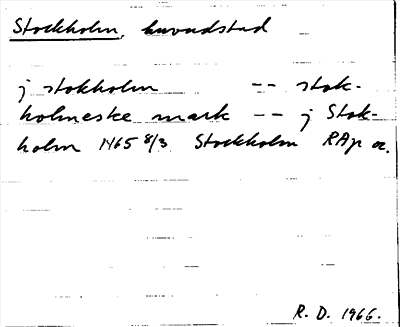 Stockholm, huvudstad
j stokholm -- stok-
holmeske mark -- j Stok-
holm 1465 8/3 Stockholm RAp or.
R. D. 1966.